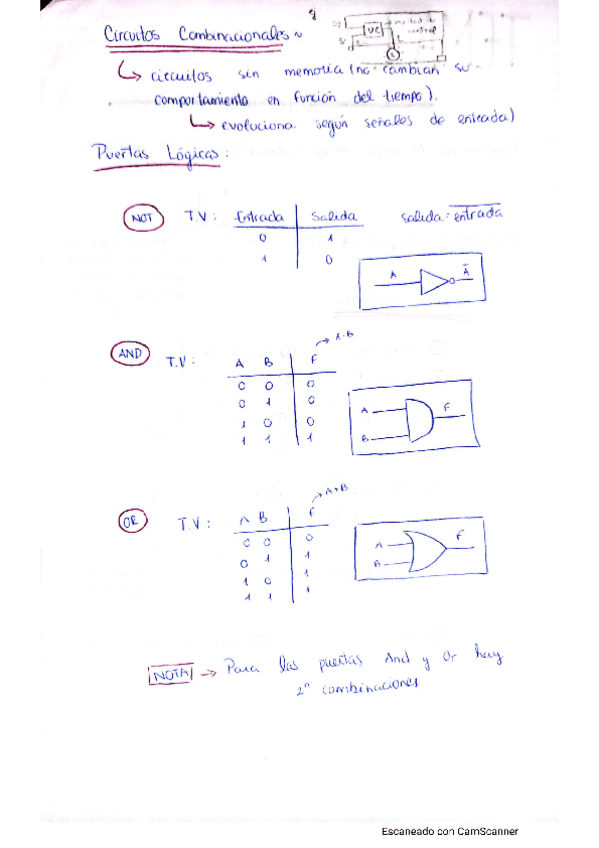 Circuitos Combinacionales ~
UC
control
↳ circuitos sin memoria (no cambian su
comportamiento en función del tiempo).
↳ evoluciona según señales de entrada)
Puertas Lógicas:
NOT T.V: Entrada Salida salida = entrada
0 1
1 0
A Ā
AND T.V: A B F → A·B
0 0 0
0 1 0
1 0 0
1 1 1
A B F
OR T.V: A B F → A+B
0 0 0
0 1 1
1 0 1
1 1 1
A B F
NOTA → Para las puertas And y Or hay
2ⁿ combinaciones
Escaneado con CamScanner